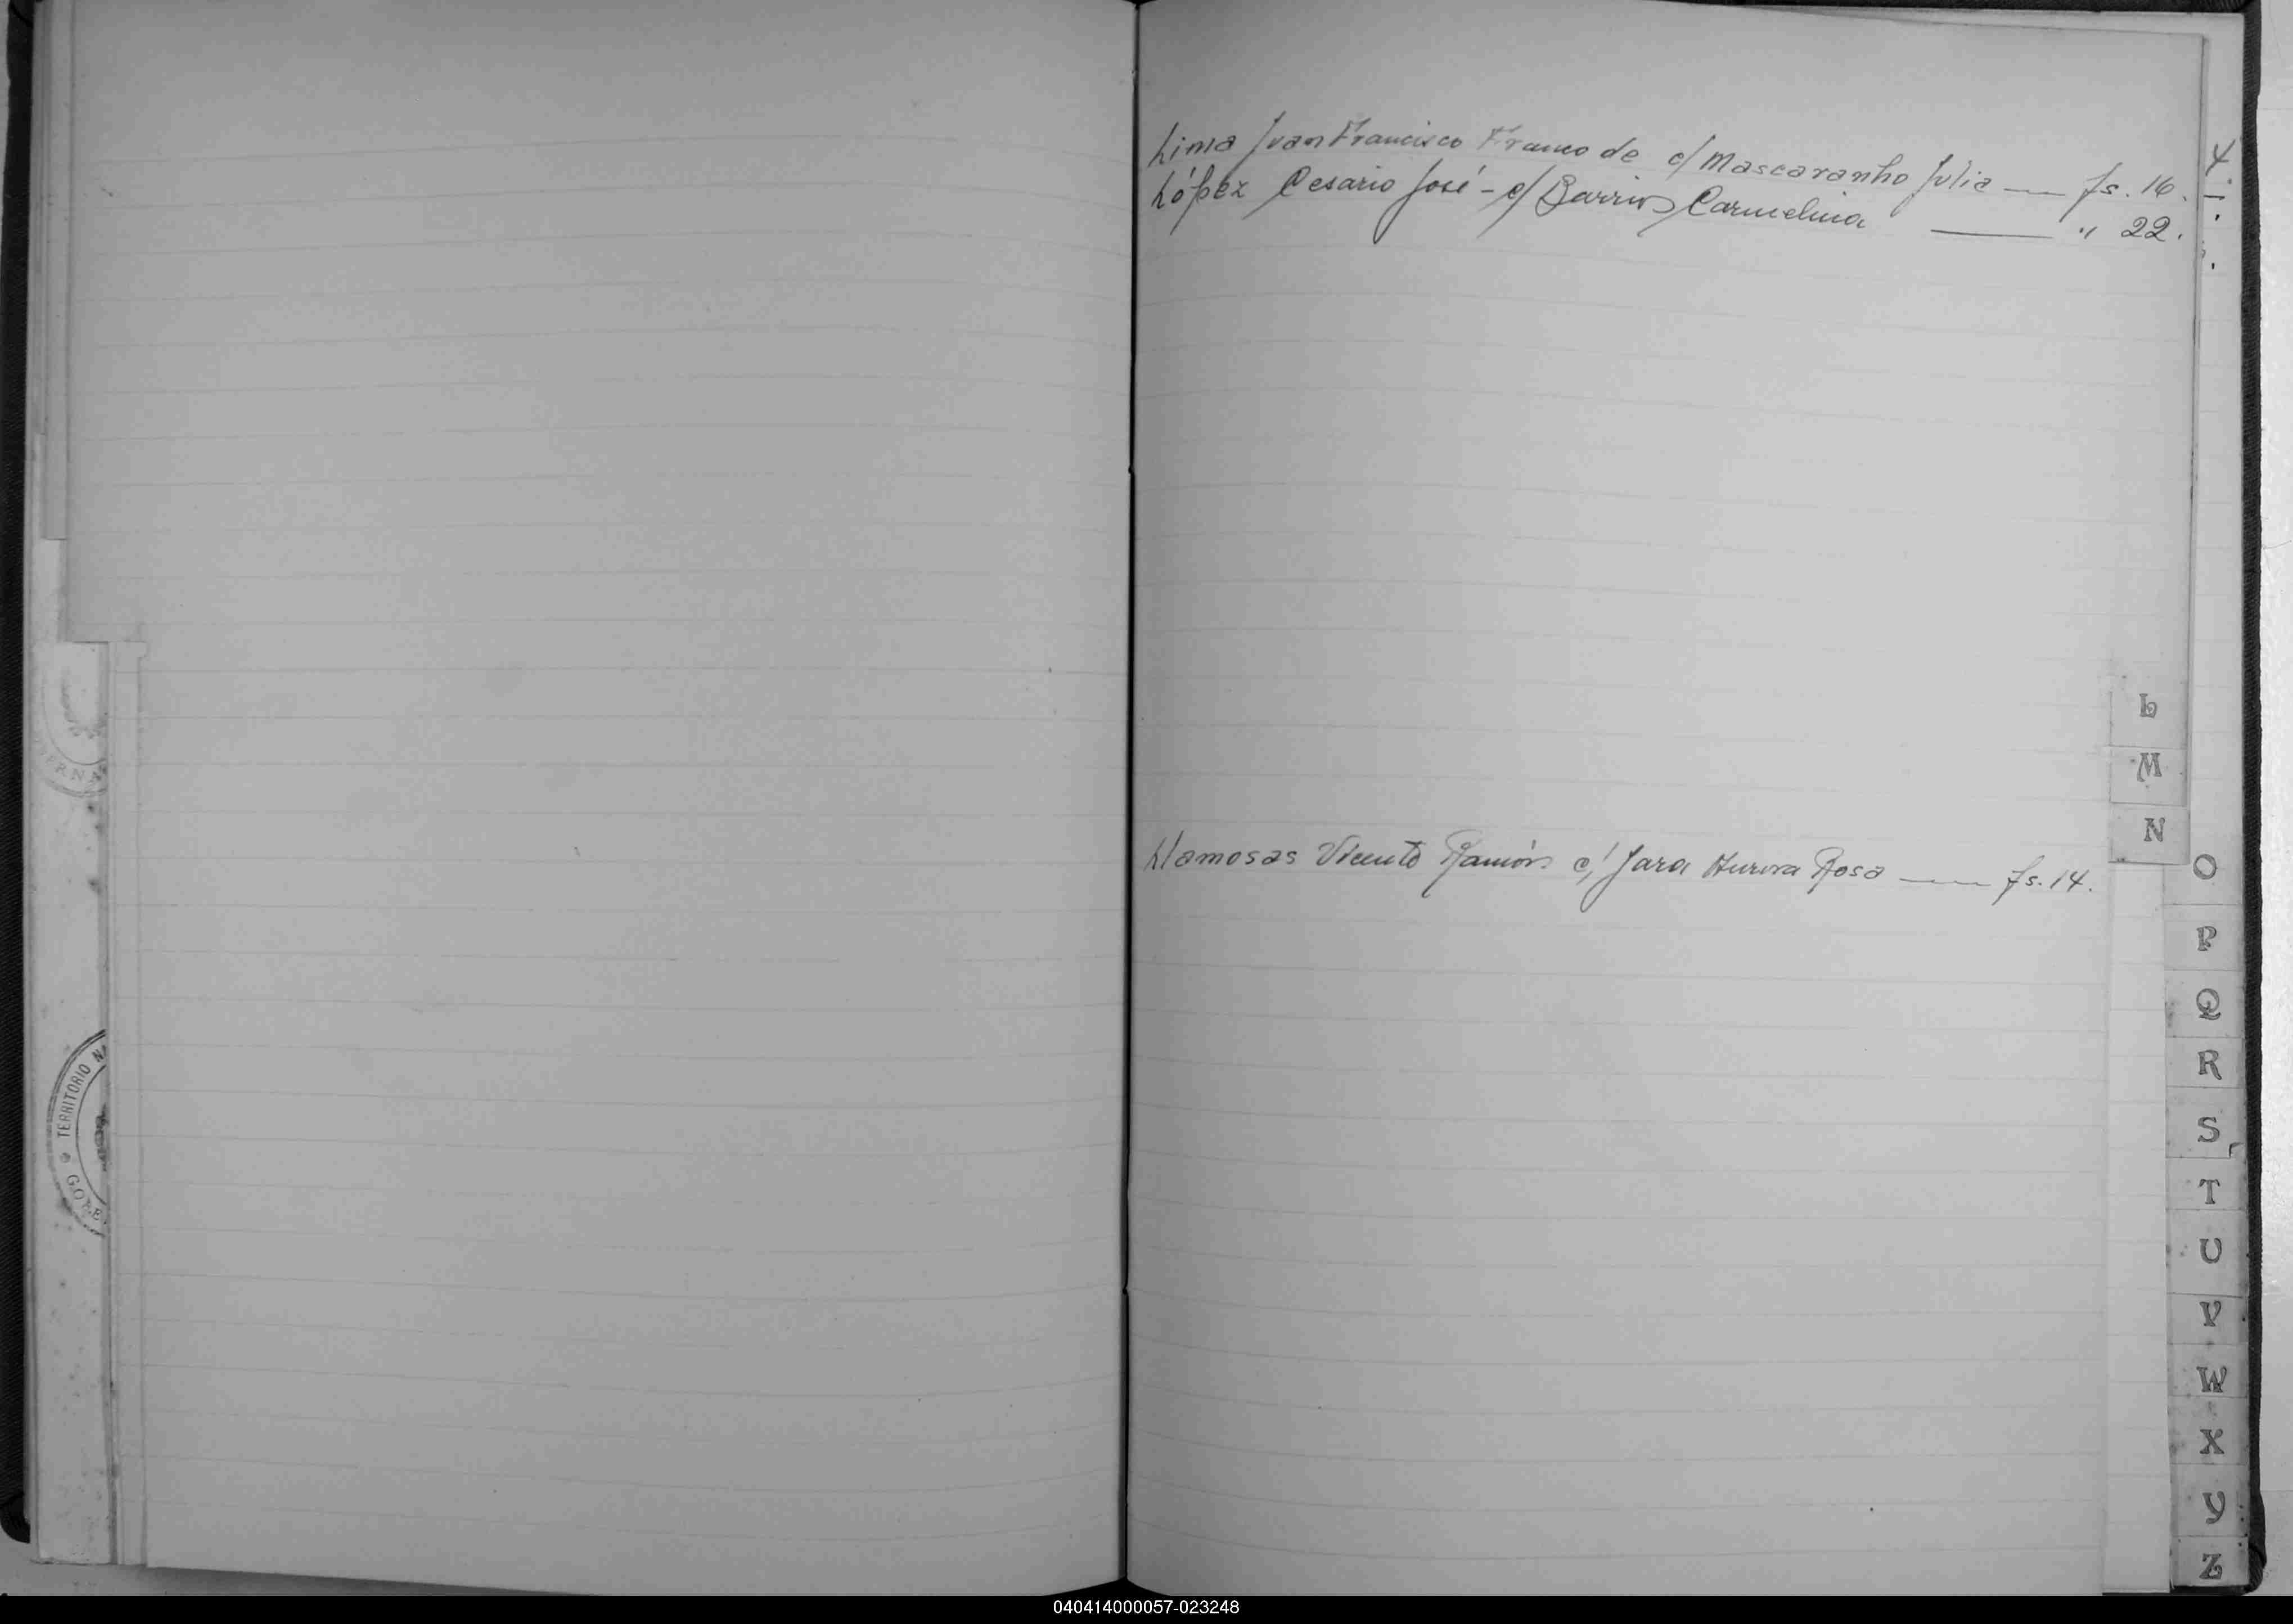 Lima Juan Francisco Franco de c/ Mascaranho Julia — fs. 16.
López Cesario José - c/ Barrios Carmelina — " 22.
Llamosas Vicente Ramón c/ Jara Aurora Rosa — fs. 14.
4
L
M
N
O
P
Q
R
S
T
U
V
W
X
Y
Z
ERNA
TERRITORIO N
040414000057-023248